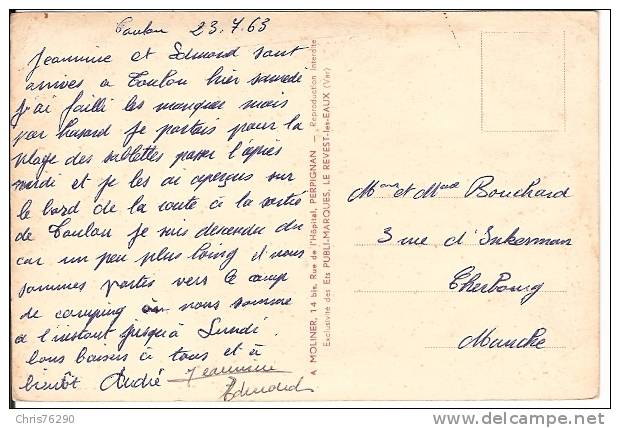 Toulon 23.7.63
Jeannine et Edmond sont
arrivés a Toulon hier samedi
j'ai failli les manquer mais
par hasard je partais pour la
plage des sablettes passer l'après
midi et je les ai aperçus sur
le bord de la route à la sortie
de Toulon je suis descendu du
car un peu plus loing et nous
sommes partis vers le camp
de camping ou nous somme
a l'instant jusqu'à Lundi.
bons baisers à tous et à
bientôt André Jeannine
Edmond
A MOLINER, 14 bis, Rue de l'Hôpital, PERPIGNAN — Reproduction Interdite
Exclusivité des Ets PUBLI-MARQUES, LE REVEST-les-EAUX (Var)
Mons et Mme Bouchard
3 rue d'Inkerman
Cherbourg
Manche
Chris76290
www.delcampe.net